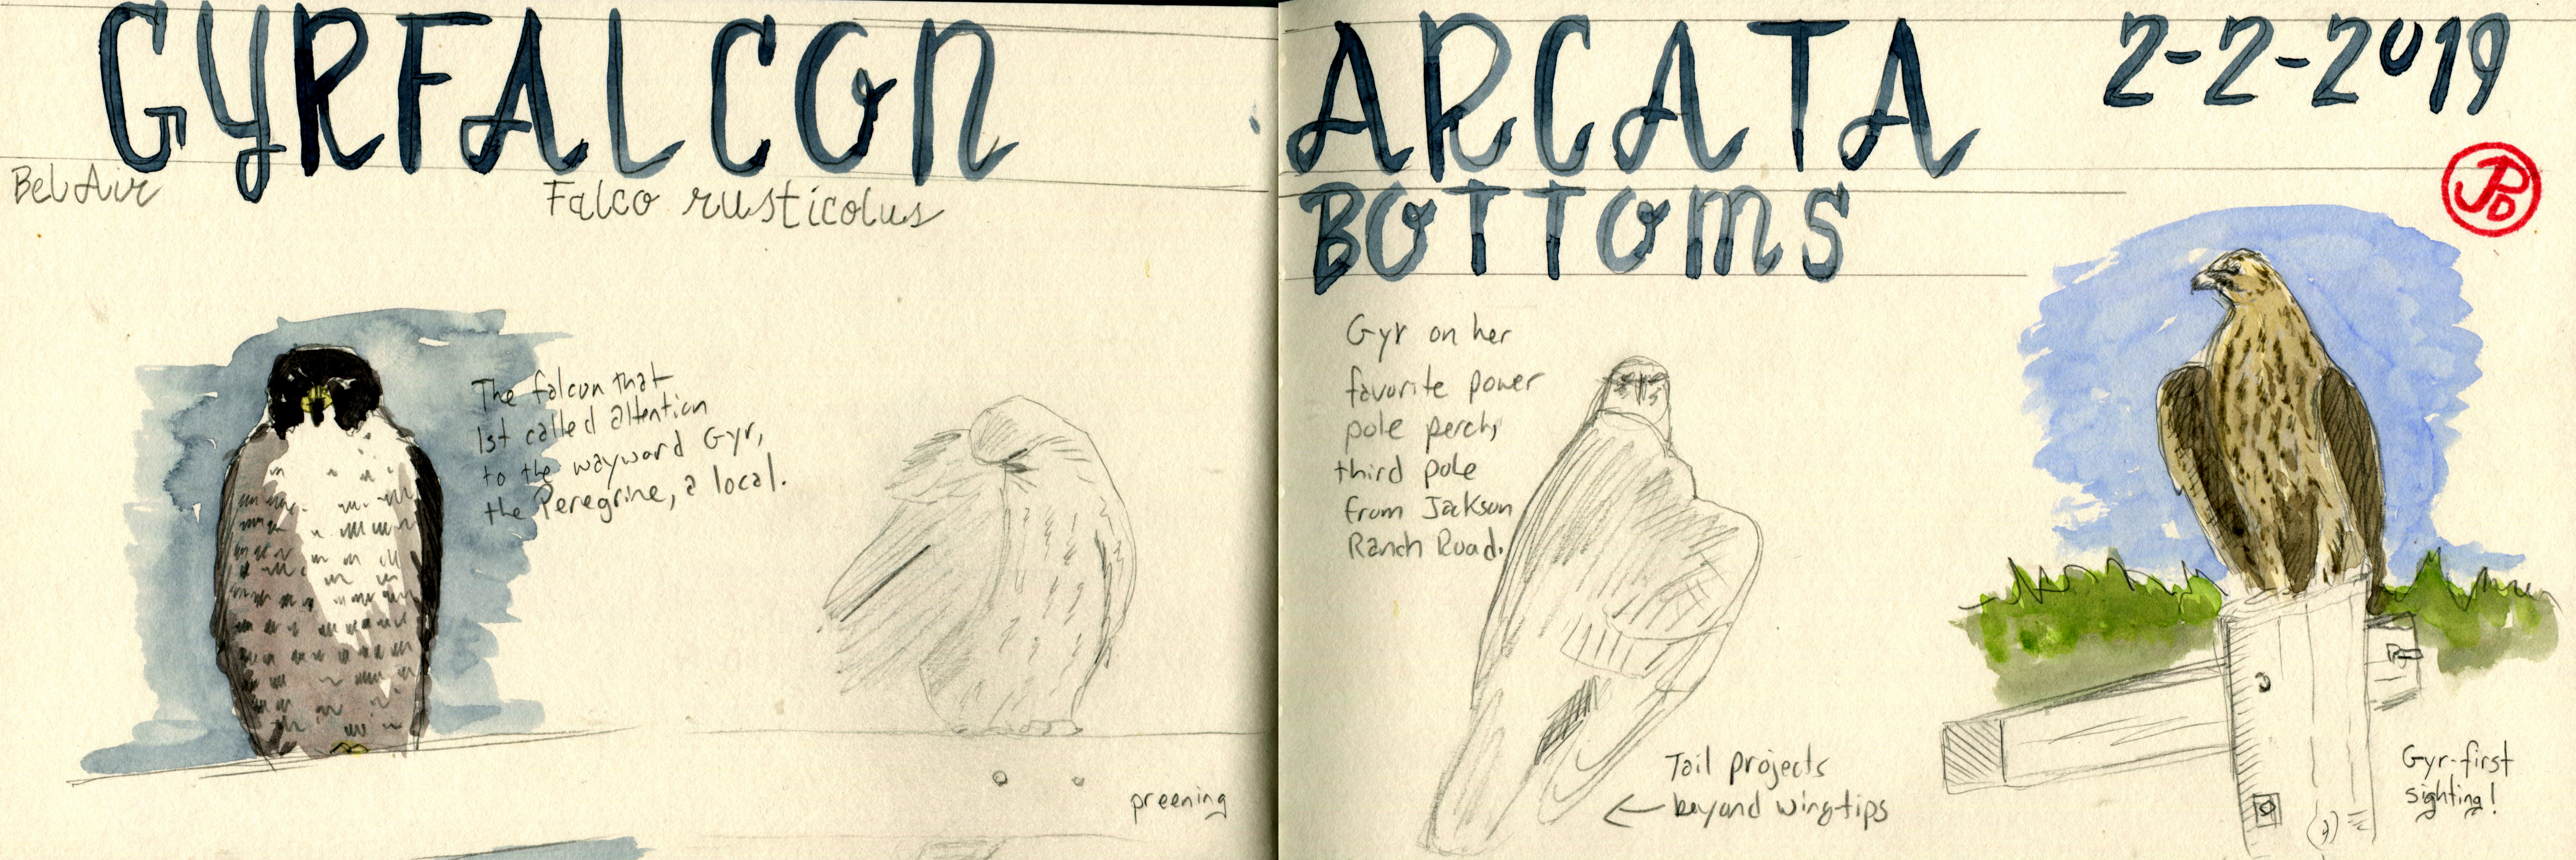 GYRFALCON
Bel Air
Falco rusticolus
The falcon that
1st called attention
to the wayward Gyr,
the Peregrine, a local.
preening
ARCATA
BOTTOMS
2-2-2019
JPD
Gyr on her
favorite power
pole perch,
third pole
from Jackson
Ranch Road.
Tail projects
beyond wingtips
Gyr-first
sighting!